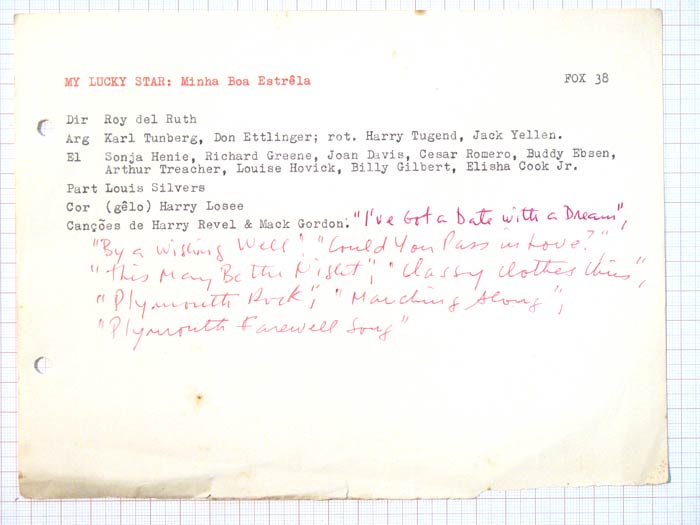 MY LUCKY STAR: Minha Boa Estrêla FOX 38
Dir Roy del Ruth
Arg Karl Tunberg, Don Ettlinger; rot. Harry Tugend, Jack Yellen.
El Sonja Henie, Richard Greene, Joan Davis, Cesar Romero, Buddy Ebsen,
Arthur Treacher, Louise Hovick, Billy Gilbert, Elisha Cook Jr.
Part Louis Silvers
Cor (gêlo) Harry Losee
Canções de Harry Revel & Mack Gordon: "I've Got a Date with a Dream",
"By a Wishing Well", "Could You Pass in Love?"
"This May Be the Night", "Classy Clothes Chris",
"Plymouth Rock", "Marching Along",
"Plymouth Farewell Song"